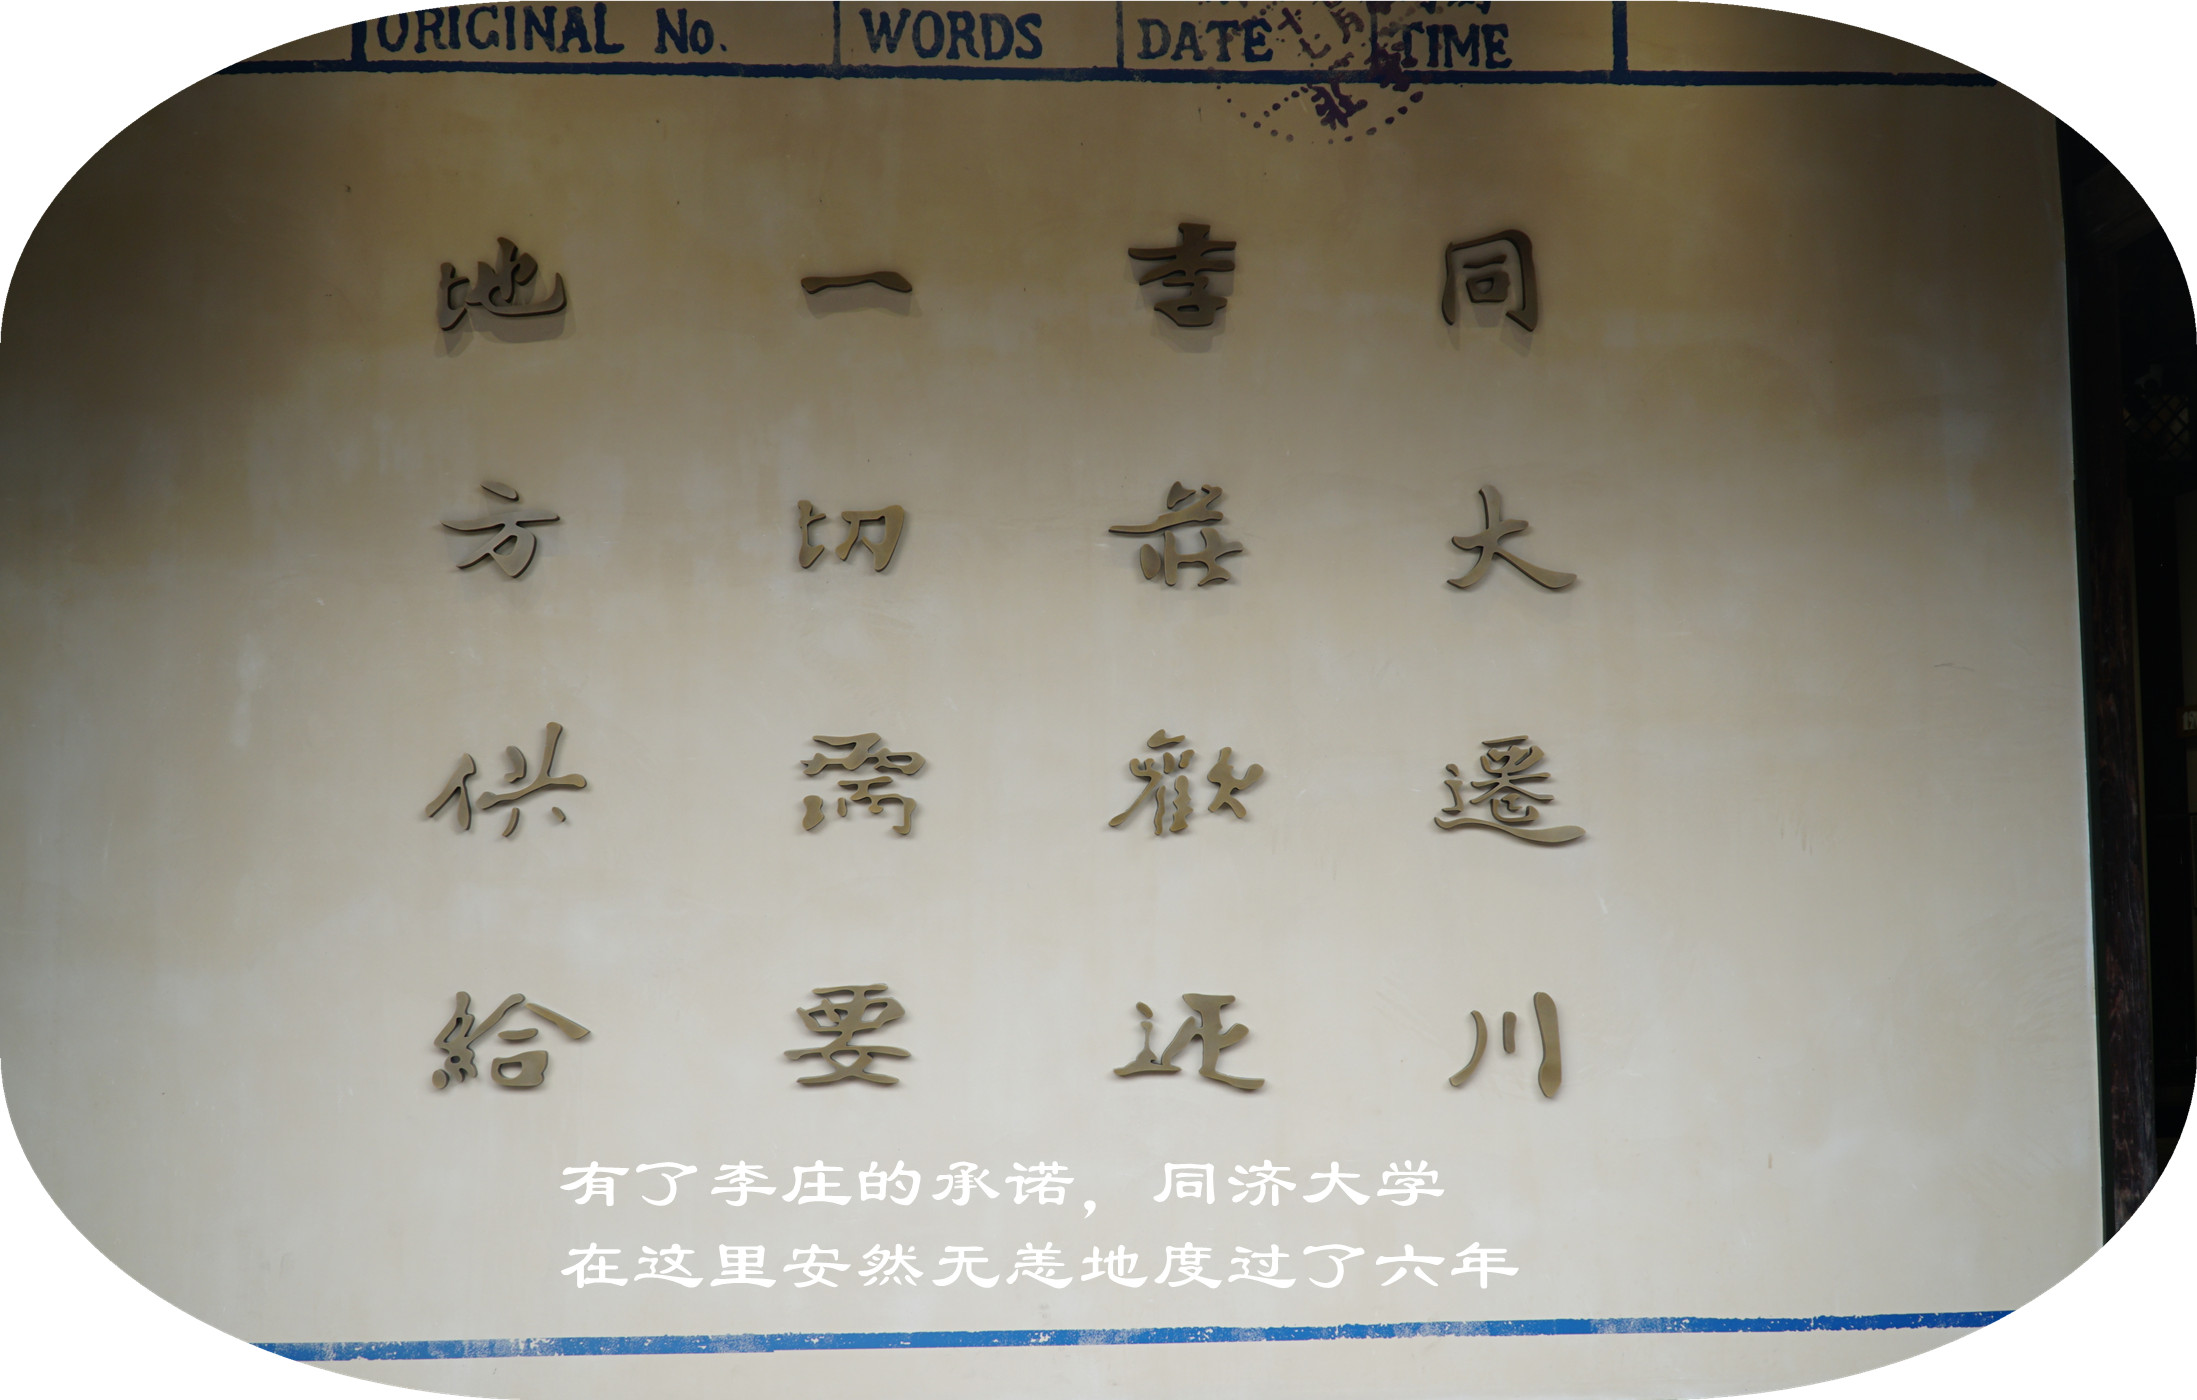 ORIGINAL No. WORDS DATE TIME
同大遷川
李莊歡迎
一切需要
地方供給
有了李庄的承诺，同济大学
在这里安然无恙地度过了六年